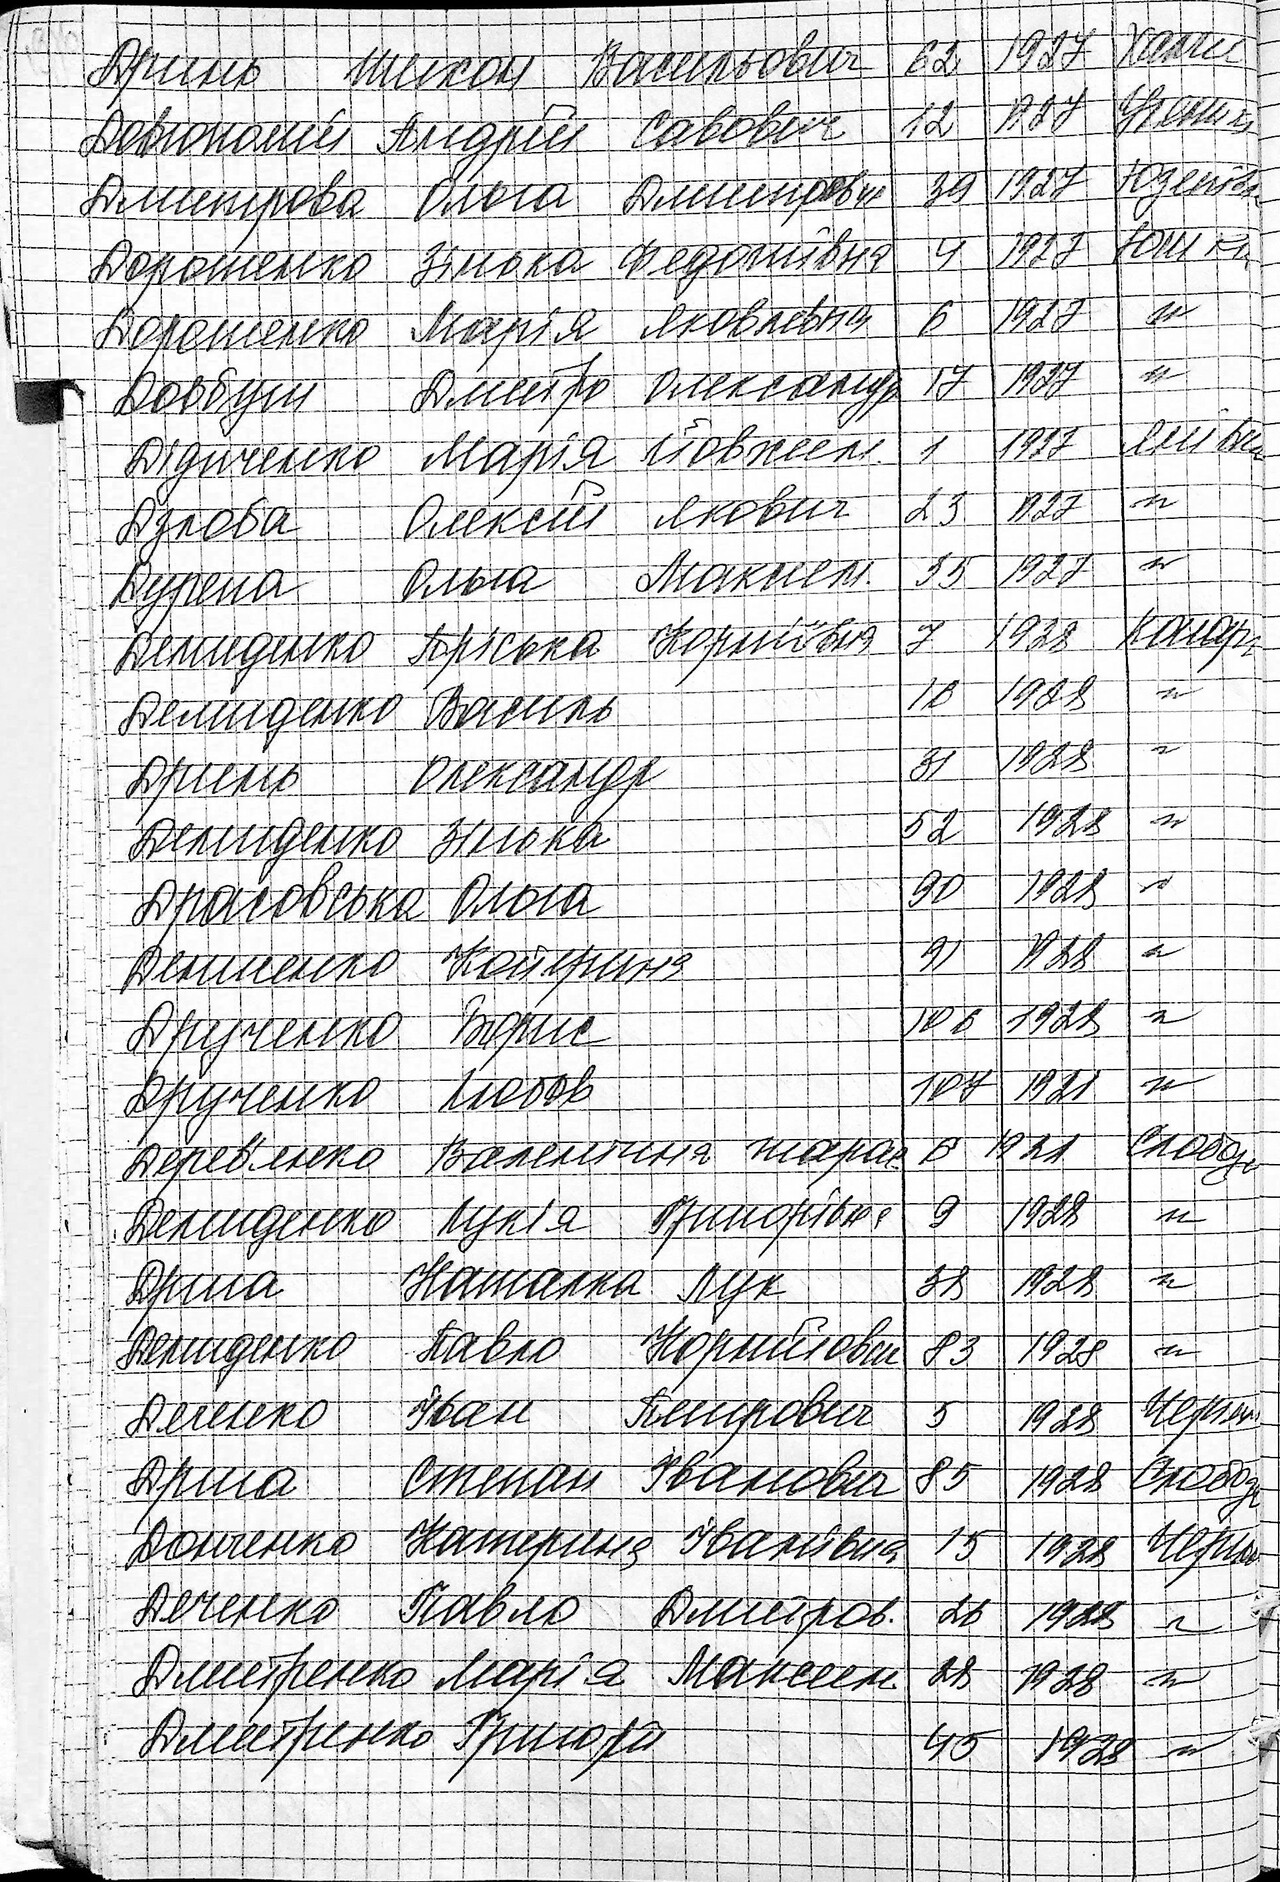 Дринь Никон Васильович 62 1927 Хали
Андрій Савович 12 1927
Дмитрова Ольга Дмитровн 39 1927 Юзефівк
Дорошенко Зінька Федотівна 4 1927 Юшки
Дорошенко Марія Яковлевна 6 1927 "
Довбуш Дмитро Олександр 17 1927 "
Дідиченко Марія Йовхим. 1 1927 Янівка
Дзюба Олексій Якович 23 1927 "
Дурепа Ольга Максим. 35 1927 "
Демиденко Пріська Корніївна 7 1928 Кагарл
Демиденко Василь 18 1928 "
Дринь Олександр 31 1928 "
Демиденко Зінька 52 1928 "
Драговська Ольга 90 1928 "
Демиденко Катерина 91 1928 "
Друченко Борис 106 1928 "
Друченко Любов 107 1928 "
Дерев'янко Валентина тарас 6 1928 Слобода
Демиденко Лукія Григорівна 9 1928 "
Дрига Наталка Лук 38 1928 "
Демиденко Павло Корнійович 83 1928 "
Деченко Іван Петрович 5 1928 Черня
Дрига Степан Іванович 85 1928 Слобода
Донченко Катерина Іванівна 15 1928 Черня
Деченко Павло Дмитров. 26 1928 "
Дмитренко Марія Максим. 28 1928 "
Дмитренко Григорій 45 1928 "